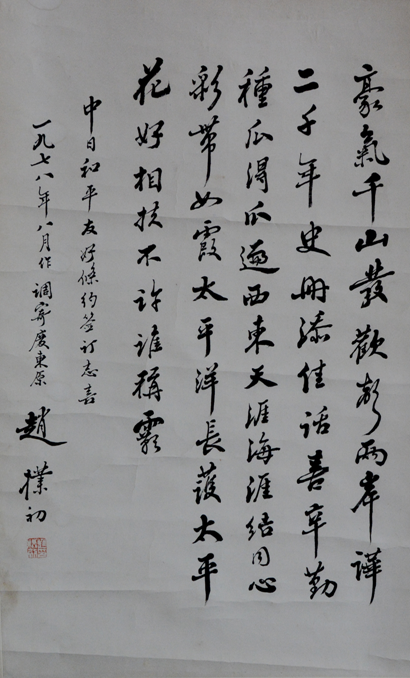 豪氣千山發歡聲兩岸譁
二千年史冊添佳話善辛勤
種瓜得瓜遍西東天涯海涯結同心
彩帶如霞太平洋長護太平
花好相扶不許誰稱霸
中日和平友好條約簽訂志喜
一九七八年八月作調寄慶東原
趙樸初